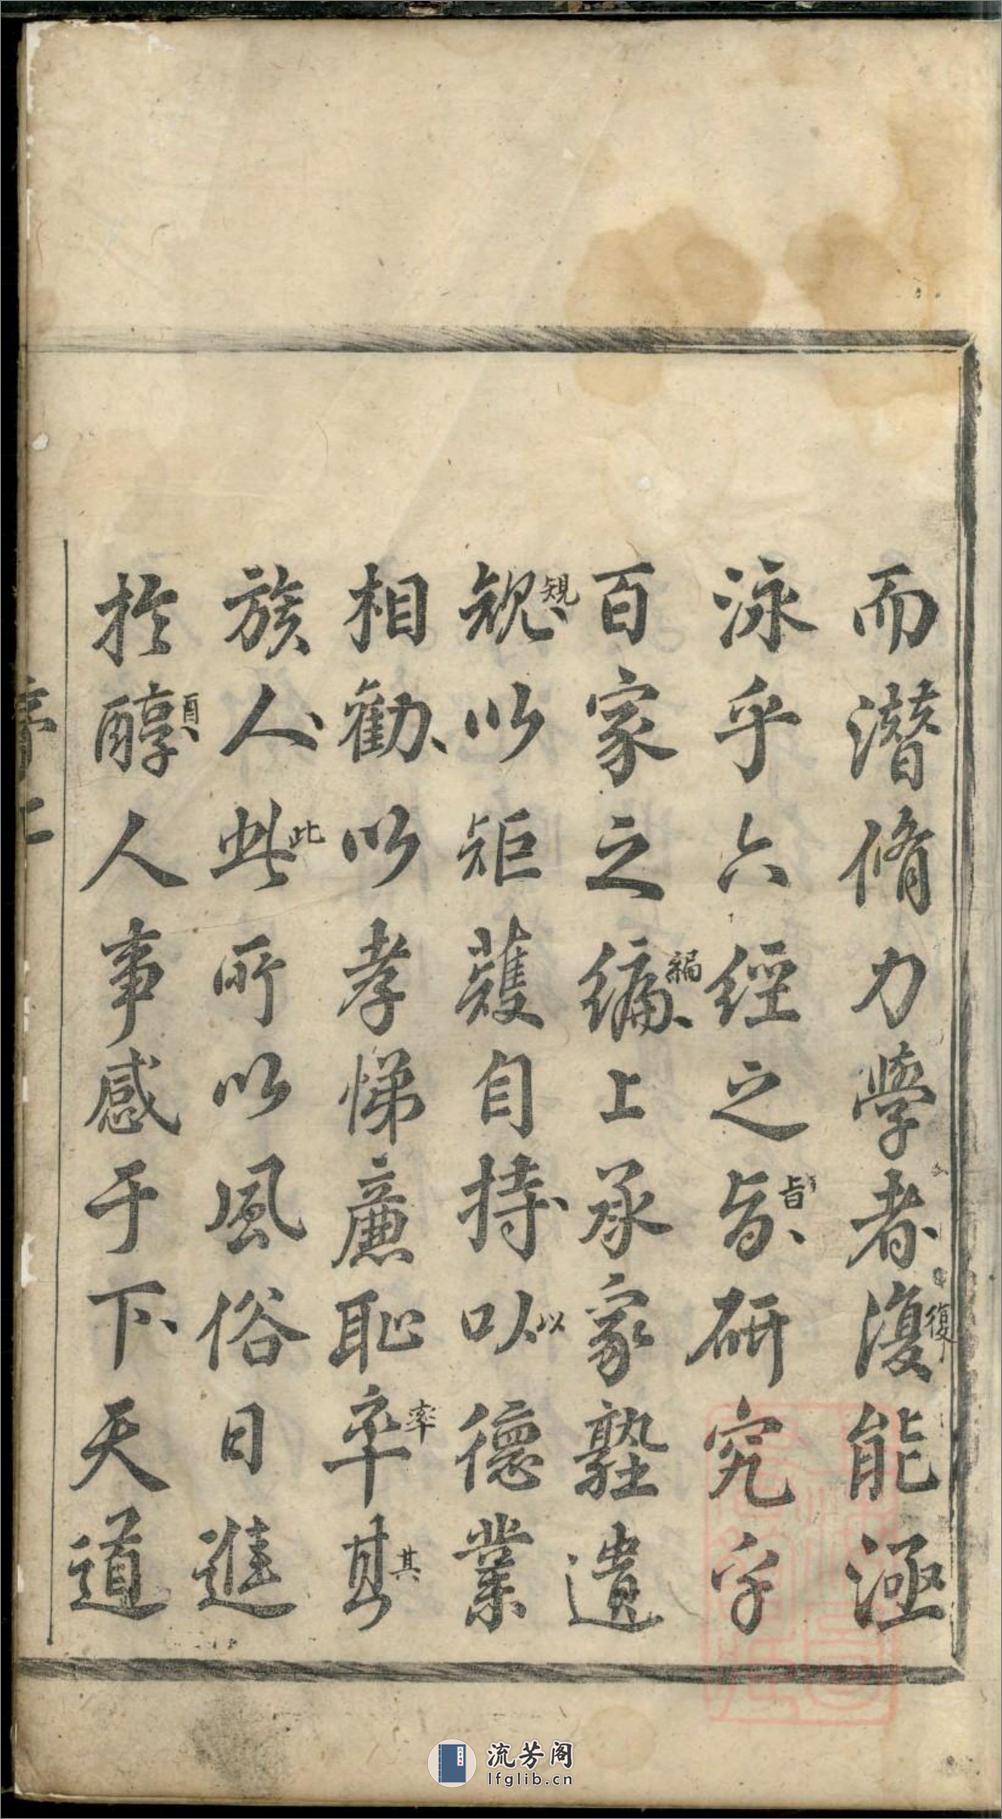 而潛脩力學者復能涵
復
泳乎六經之旨研究乎
旨
百家之編上承家塾遺
編
規以矩蒦自持以德業
規
以
相勸以孝悌廉恥率其
率
其
族人此所以風俗日進
此
於醇人事感于下天道
酉
流芳阁
lfglib.cn